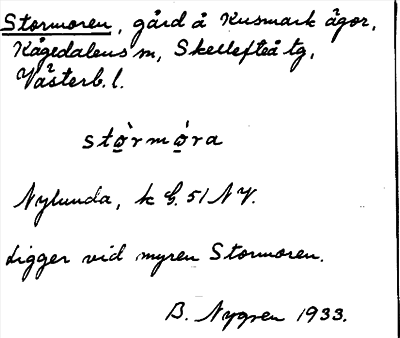 Stormoren, gård å Kusmark ägor,
Kågedalens m, Skellefteå tg,
Västerb. l.
stò̱rmò̱ra
Nylunda, k G. 51 NV.
Ligger vid myren Stormoren.
B. Nygren 1933.